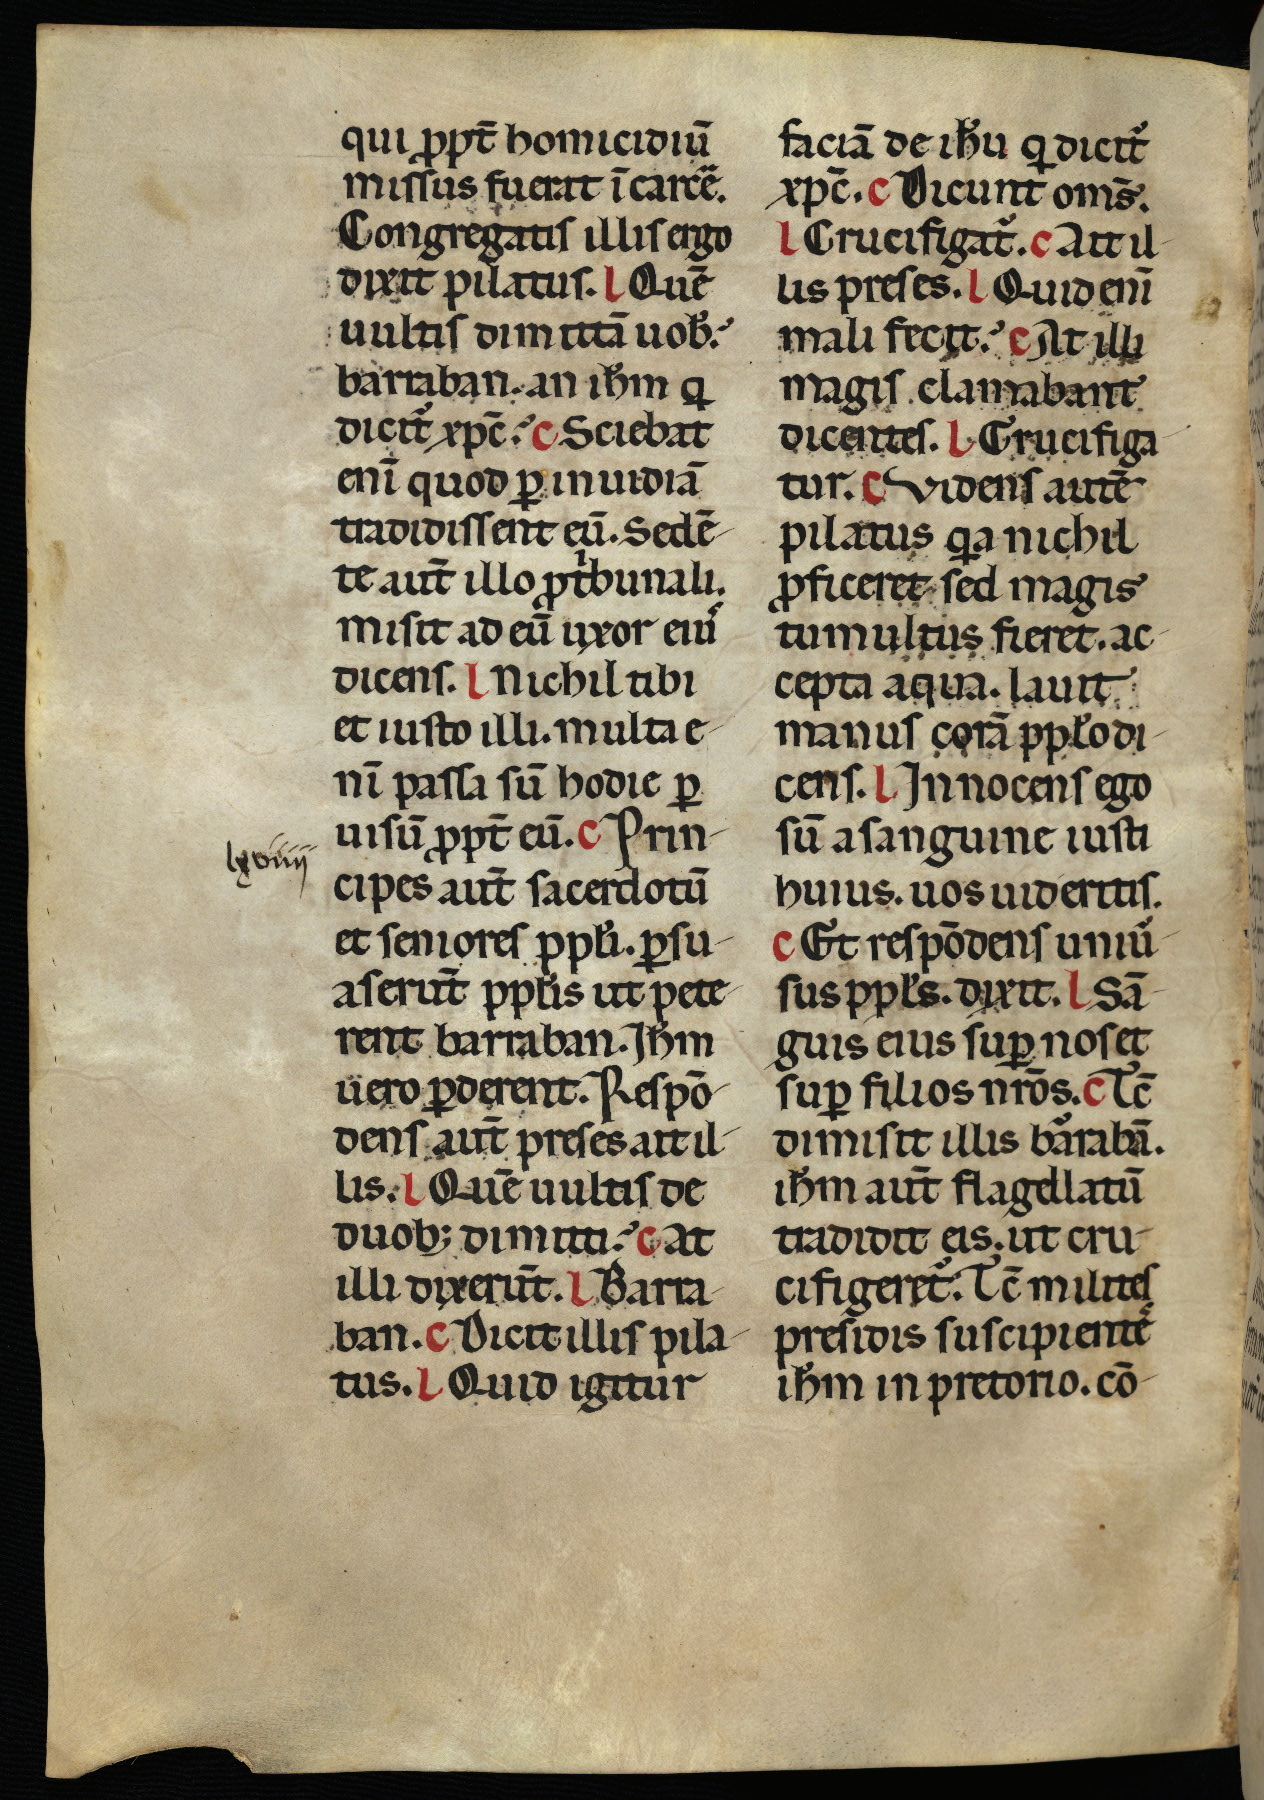 qui ꝓpt̄ homicidiū
missus fuerat ī carcē.
Congregatis illis ergo
dixit pilatus. l Quē
uultis dimittā uob̄.
barraban. an ih̄m q
dicit᷑ xp̄c. c Sciebat
enī quod ꝑ inuidiā
tradidissent eū. Sedē-
te aut̄ illo ꝓ tⁱbunali.
misit ad eū uxor eiꝰ
dicens. l Nichil tibi
et iusto illi. multa e-
nī passa sū hodie ꝑ
uisū ꝓpt̄ eū. c Prin-
lxviiij
cipes aut̄ sacerdotū
et seniores ppl̄i. ꝑsu-
aserūt ppl̄is ut pete-
rent barraban. Ih̄m
uero ꝑderent. Respō-
dens aut̄ preses ait il-
lis. l Quē uultis de
duob; dimitti. c At
illi dixerūt. l Barra-
ban. c Dicit illis pila-
tus. l Quid igitur
faciā de ih̄u q dicit᷑
xp̄c. c Dicunt om̄s.
l Crucifigat᷑. c Ait il-
lis preses. l Quid enī
mali fecit. c At illi
magis clamabant
dicentes. l Crucifiga-
tur. c Videns autē
pilatus qa nichil
ꝓficeret sed magis
tumultus fieret. ac-
cepta aqua. lauit
manus corā ppl̄o di-
cens. l Innocens ego
sū a sanguine iusti
huius. uos uideritis.
c Et respōdens uniu᷑-
sus ppl̄s. dixit. l Sā-
guis eius suꝑ nos et
suꝑ filios nr̄os. c Tc̄
dimisit illis bar᷑abā.
ih̄m aut̄ flagellatū
tradidit eis. ut cru-
cifigeret᷑. Tc̄ milites
presidis suscipientē
ih̄m in pretorio. cō-